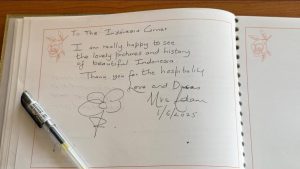 To The Indonesia Corner
I am really happy to see
the lovely pictures and history
of beautiful Indonesia.
Thank you for the hospitality
Love and
Mrs
1/6/2025